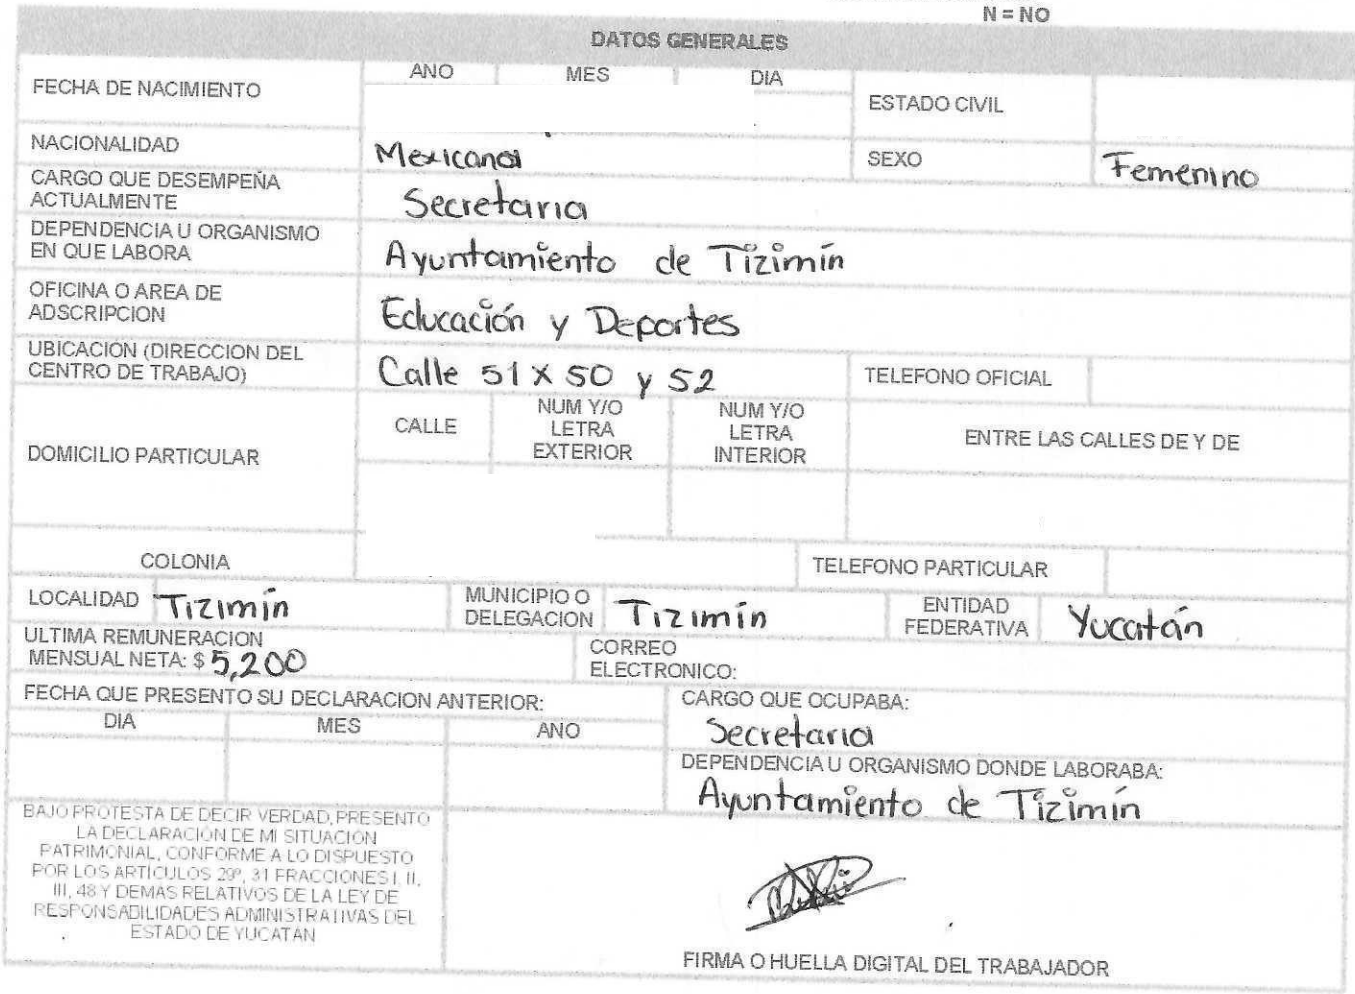 N = NO
DATOS GENERALES
FECHA DE NACIMIENTO
ANO MES DIA
ESTADO CIVIL
NACIONALIDAD Mexicana SEXO Femenino
CARGO QUE DESEMPEÑA
ACTUALMENTE
Secretaria
DEPENDENCIA U ORGANISMO
EN QUE LABORA
Ayuntamiento de Tizimín
OFICINA O AREA DE
ADSCRIPCION
Educación y Deportes
UBICACION (DIRECCION DEL
CENTRO DE TRABAJO)
Calle 51 x 50 y 52
TELEFONO OFICIAL
DOMICILIO PARTICULAR
CALLE
NUM Y/O
LETRA
EXTERIOR
NUM Y/O
LETRA
INTERIOR
ENTRE LAS CALLES DE Y DE
COLONIA
TELEFONO PARTICULAR
LOCALIDAD Tizimín
MUNICIPIO O
DELEGACION
Tizimín
ENTIDAD
FEDERATIVA
Yucatán
ULTIMA REMUNERACION
MENSUAL NETA: $ 5,200
CORREO
ELECTRONICO:
FECHA QUE PRESENTO SU DECLARACION ANTERIOR:
DIA MES ANO
CARGO QUE OCUPABA:
Secretaria
DEPENDENCIA U ORGANISMO DONDE LABORABA:
Ayuntamiento de Tizimín
BAJO PROTESTA DE DECIR VERDAD, PRESENTO
LA DECLARACIÓN DE MI SITUACION
PATRIMONIAL, CONFORME A LO DISPUESTO
POR LOS ARTÍCULOS 29º, 31 FRACCIONES I, II,
III, 48 Y DEMAS RELATIVOS DE LA LEY DE
RESPONSABILIDADES ADMINISTRATIVAS DEL
ESTADO DE YUCATÁN
FIRMA O HUELLA DIGITAL DEL TRABAJADOR